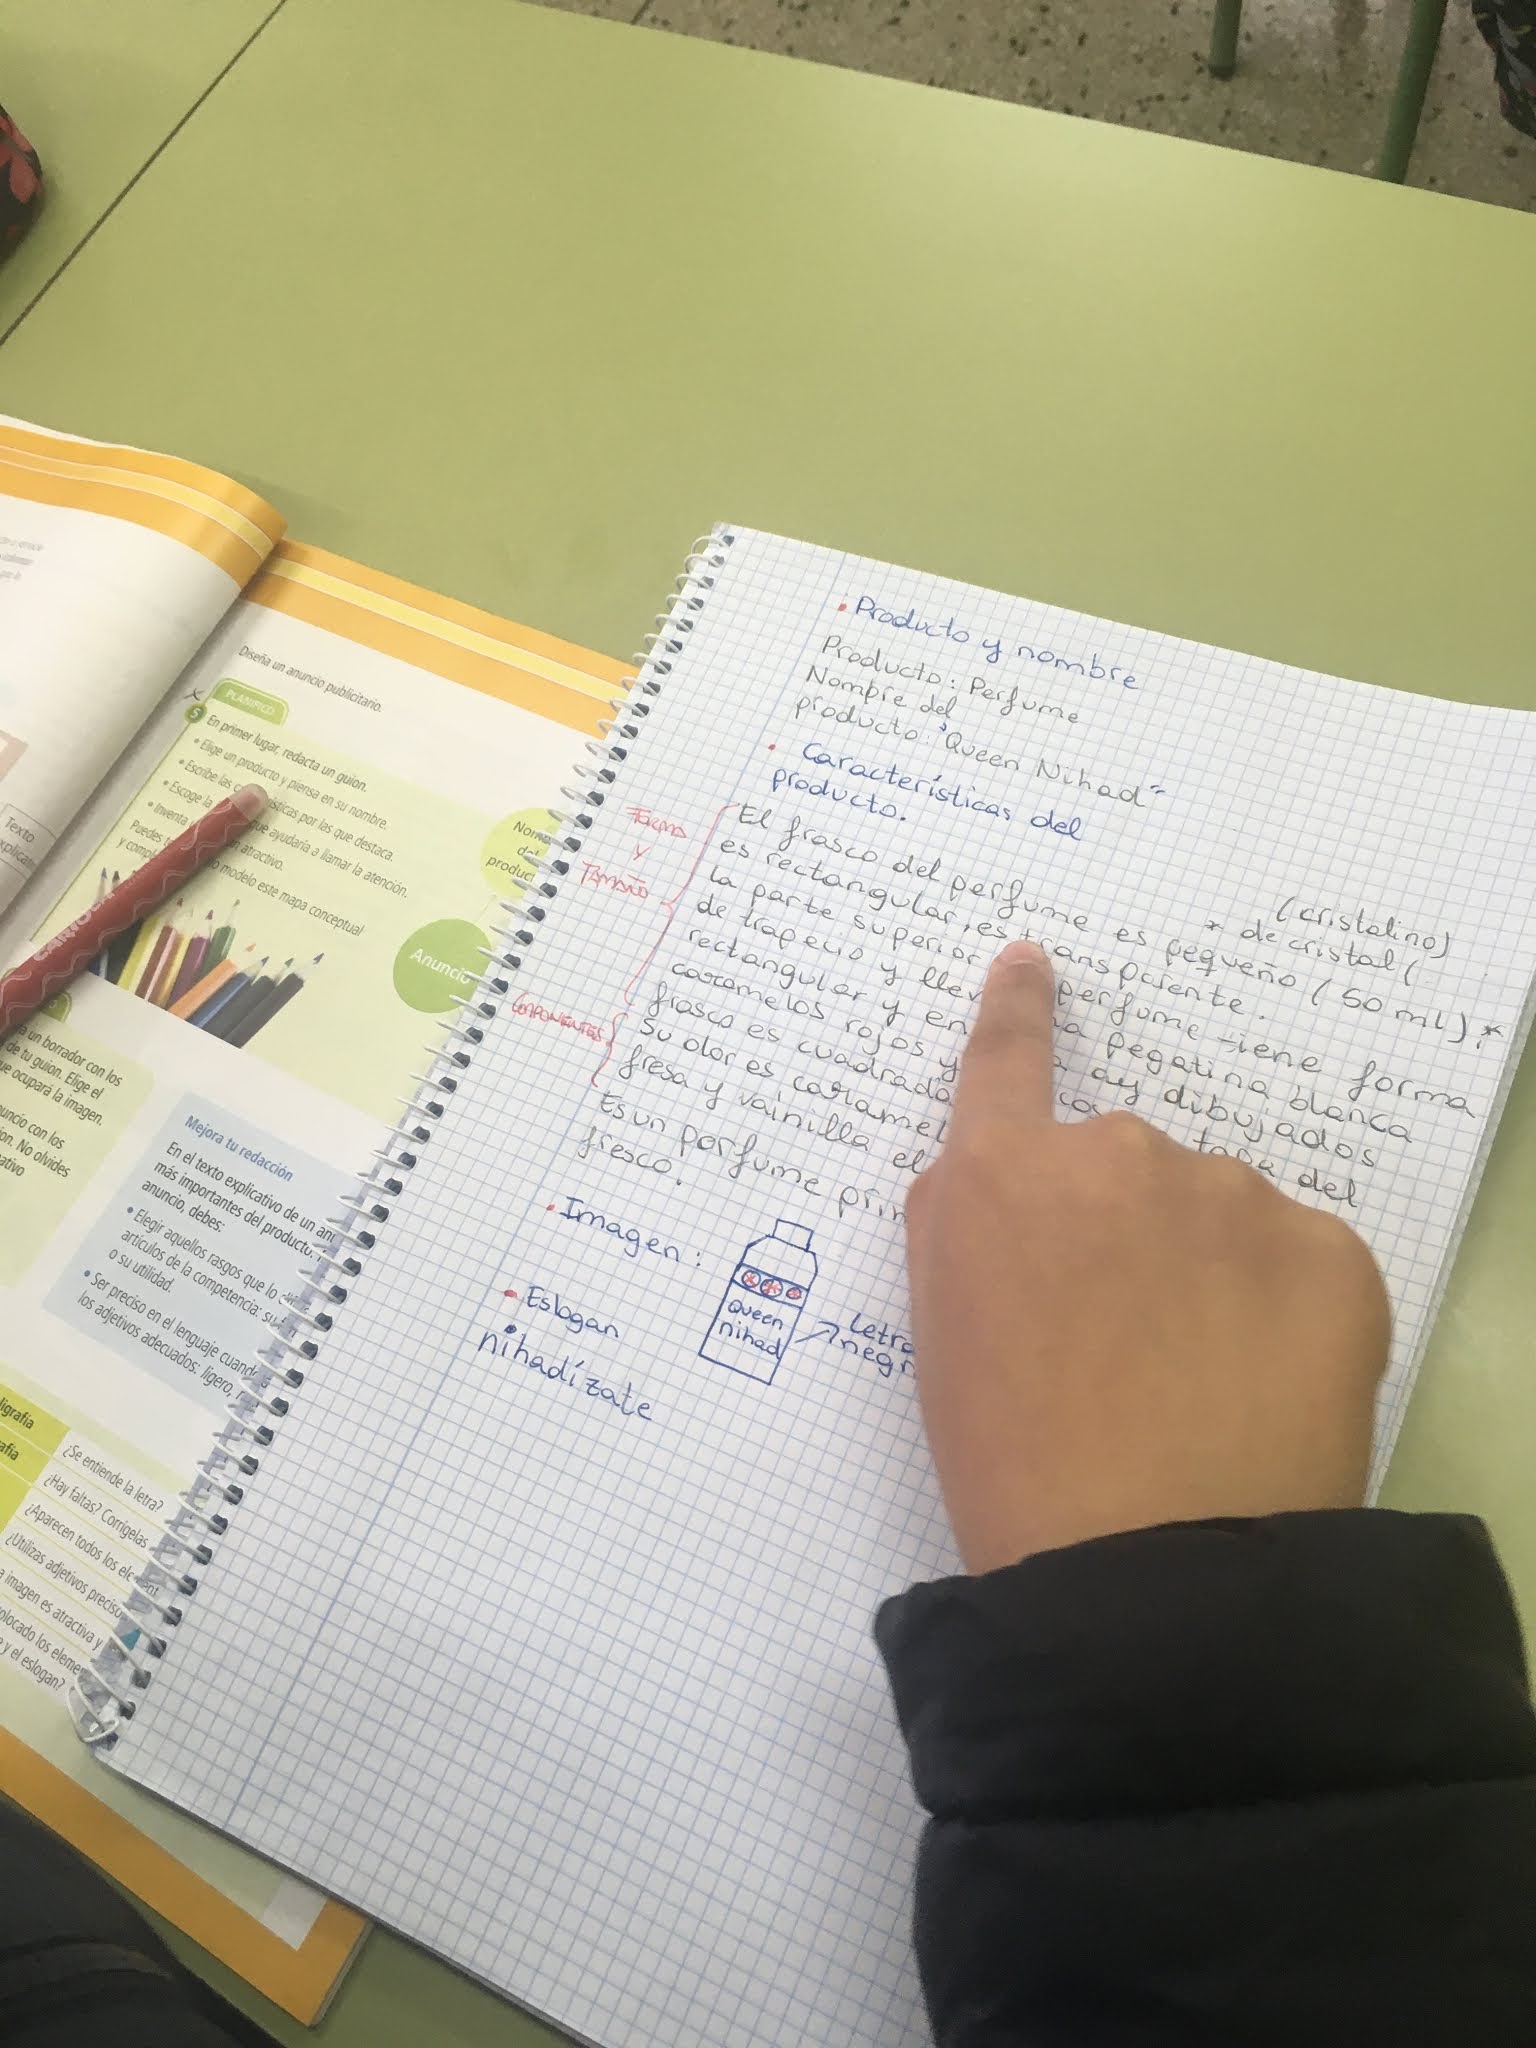 Diseña un anuncio publicitario.
PLANIFICO
5 En primer lugar, redacta un guion.
• Elige un producto y piensa en su nombre.
• Escribe las características por las que destaca.
• Escoge la que ayudaría a llamar la atención.
• Inventa atractivo.
Puedes modelo este mapa conceptual
y comple
Nom
del
product
Anuncio
Texto
xplicat
CARIOCA
a un borrador con los
de tu guion. Elige el
ue ocupará la imagen.
nuncio con los
ion. No olvides
eativo
Mejora tu redacción
En el texto explicativo de un anu
más importantes del producto.
anuncio, debes:
• Elegir aquellos rasgos que lo
artículos de la competencia: su
o su utilidad.
• Ser preciso en el lenguaje cuando
los adjetivos adecuados: ligero,
ligrafía
afía
¿Se entiende la letra?
¿Hay faltas? Corrígelas
¿Aparecen todos los element
¿Utilizas adjetivos preciso
a imagen es atractiva y
olocado los eleme
e y el eslogan?
• Producto y nombre
Producto: Perfume
Nombre del
producto: "Queen Nihad"
• Características del
producto.
Forma
y
Tamaño
(cristalino)
* de cristal (
El frasco del perfume es pequeño (50 ml) *
es rectangular, es transparente.
la parte superior perfume tiene forma
de trapecio y llev na pegatina blanca
rectangular y en a ay dibujados
caramelos rojos y cos tapa del
frasco es cuadrada
Componentes
Su olor es caramel
fresa y vainilla el
Es un porfume prim
fresco.
• Imagen:
Queen
nihad
Letra
negr
• Eslogan
nihadízate